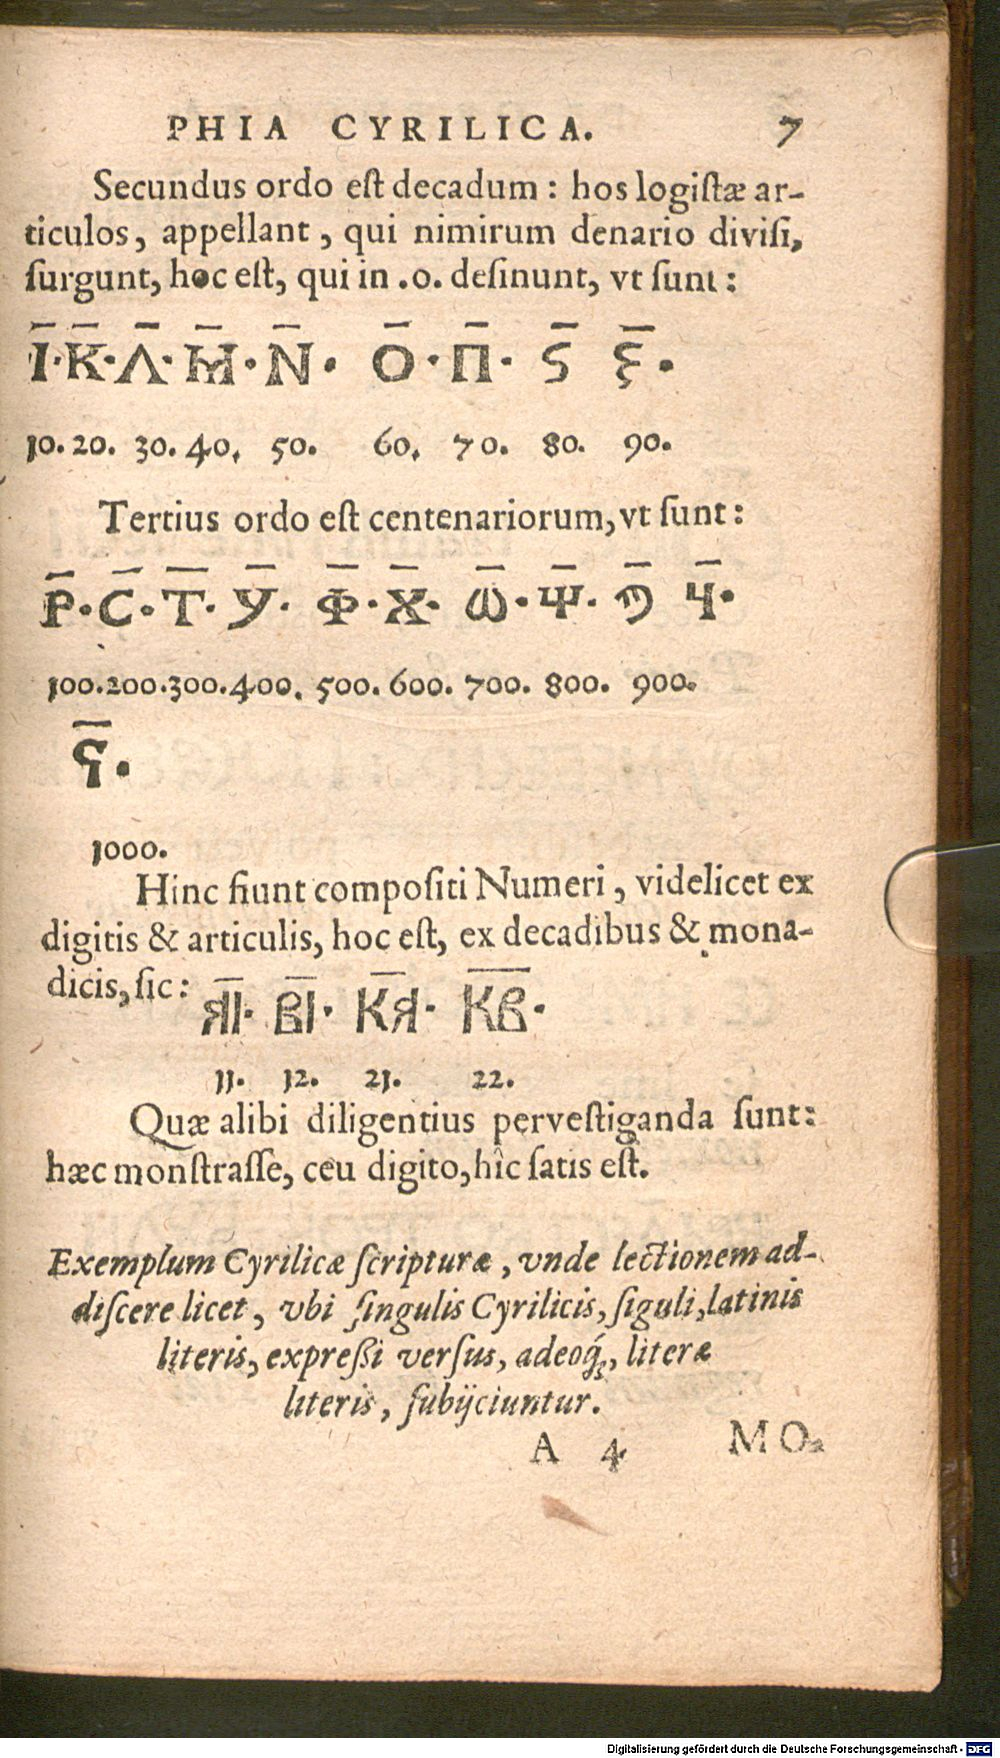 PHIA CYRILICA. 7
Secundus ordo eſt decadum : hos logiſtæ ar-
ticulos, appellant, qui nimirum denario diviſi,
ſurgunt, hoc eſt, qui in .o. deſinunt, vt ſunt :
І̅·К̅·Л̅·М̅·N̅· О̅·П̅· Ѕ̅ ξ̅·
10. 20. 30. 40. 50. 60. 70. 80. 90.
Tertius ordo eſt centenariorum, vt ſunt :
Р̅·С̅·Т̅·У̅· Ф̅·Х̅· Ѡ̅·Ѱ̅· Ч̅·
100. 200. 300. 400. 500. 600. 700. 800. 900.
1000.
Hinc fiunt compoſiti Numeri, videlicet ex
digitis & articulis, hoc eſt, ex decadibus & mona-
dicis, ſic : Я̅І· В̅І· К̅Я· К̅В̅·
11. 12. 21. 22.
Quæ alibi diligentius perveſtiganda ſunt:
hæc monſtraſſe, ceu digito, hîc ſatis eſt.
Exemplum Cyrilicæ ſcripturæ, vnde lectionem ad-
diſcere licet, vbi ſingulis Cyrilicis, ſiguli, latinis
literis, expreſſi verſus, adeoq́;, literæ
literis, ſubijciuntur.
A 4 MO-
Digitalisierung gefördert durch die Deutsche Forschungsgemeinschaft - DFG